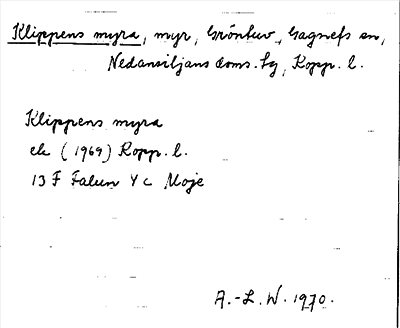 Klippens myra, myr, Gröntuv, Gagnefs sn,
Nedansiljans doms. tg, Kopp. l.
Klippens myra
ek (1969) Kopp. l.
13 F Falun 4 c Moje
A.-L. W. 1970.